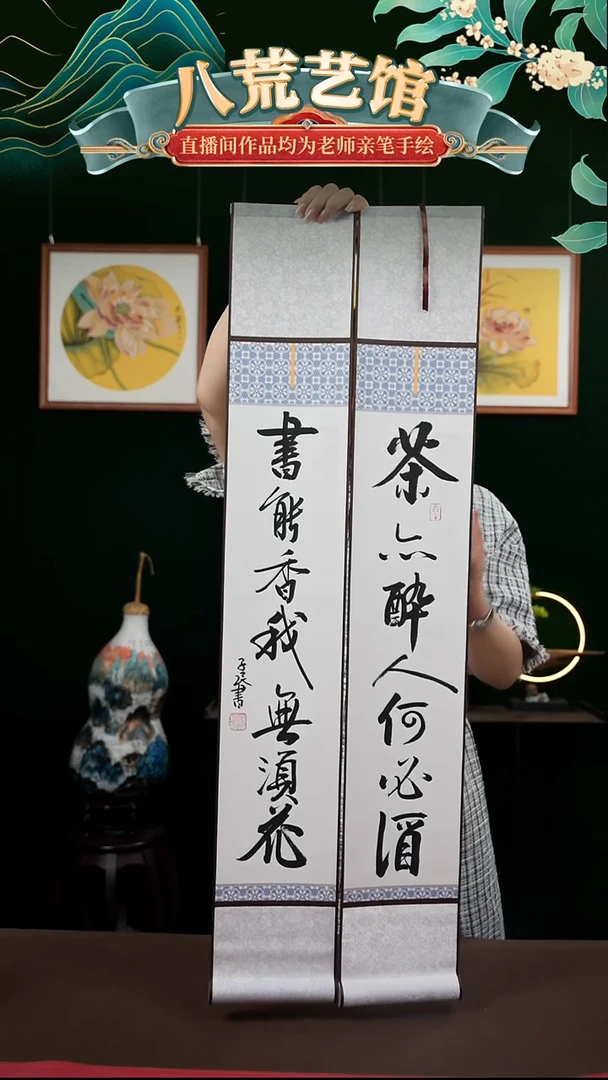 八荒艺馆
直播间作品均为老师亲笔手绘
茶亦醉人何必酒
書能香我無湏花